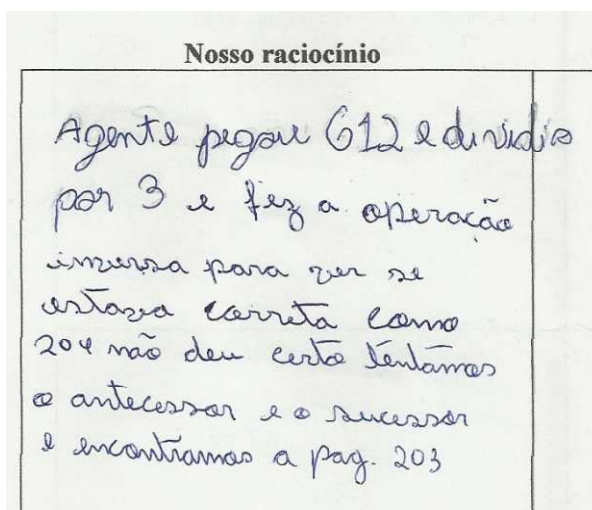 Nosso raciocínio
Agente pegou 612 e dividio
por 3 e fez a operação
inversa para ver se
estava correta como
204 não deu certo tentamos
o antecessor e o sucessor
e encontramos a pag. 203